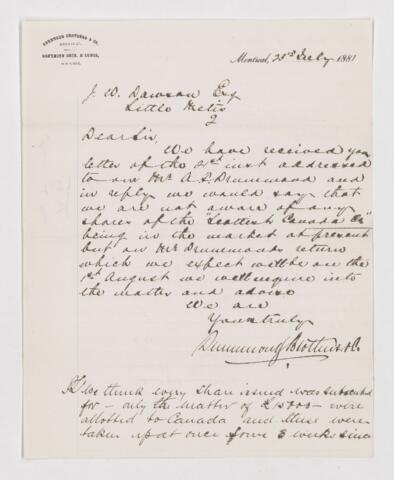 Montreal, 23rd July 1881
J. W. Dawson Esq
Little Metis
Q
Dear Sir,
We have received your
letter of the 21st inst addressed
to our Mr. A. D. Drummond and
in reply we would say that
we are not aware of any
shares of the "Scottish Canada Co"
being in the market at present
but on Mr Drummonds return
which we expect will be on the
1st August we will enquire into
the matter and advise
We are
Yours truly
Drummond Brothers & Co
We think every share issued was subscribed
for - only the matter of £15000 - were
allotted to Canada and these were
taken up at once some 3 weeks since